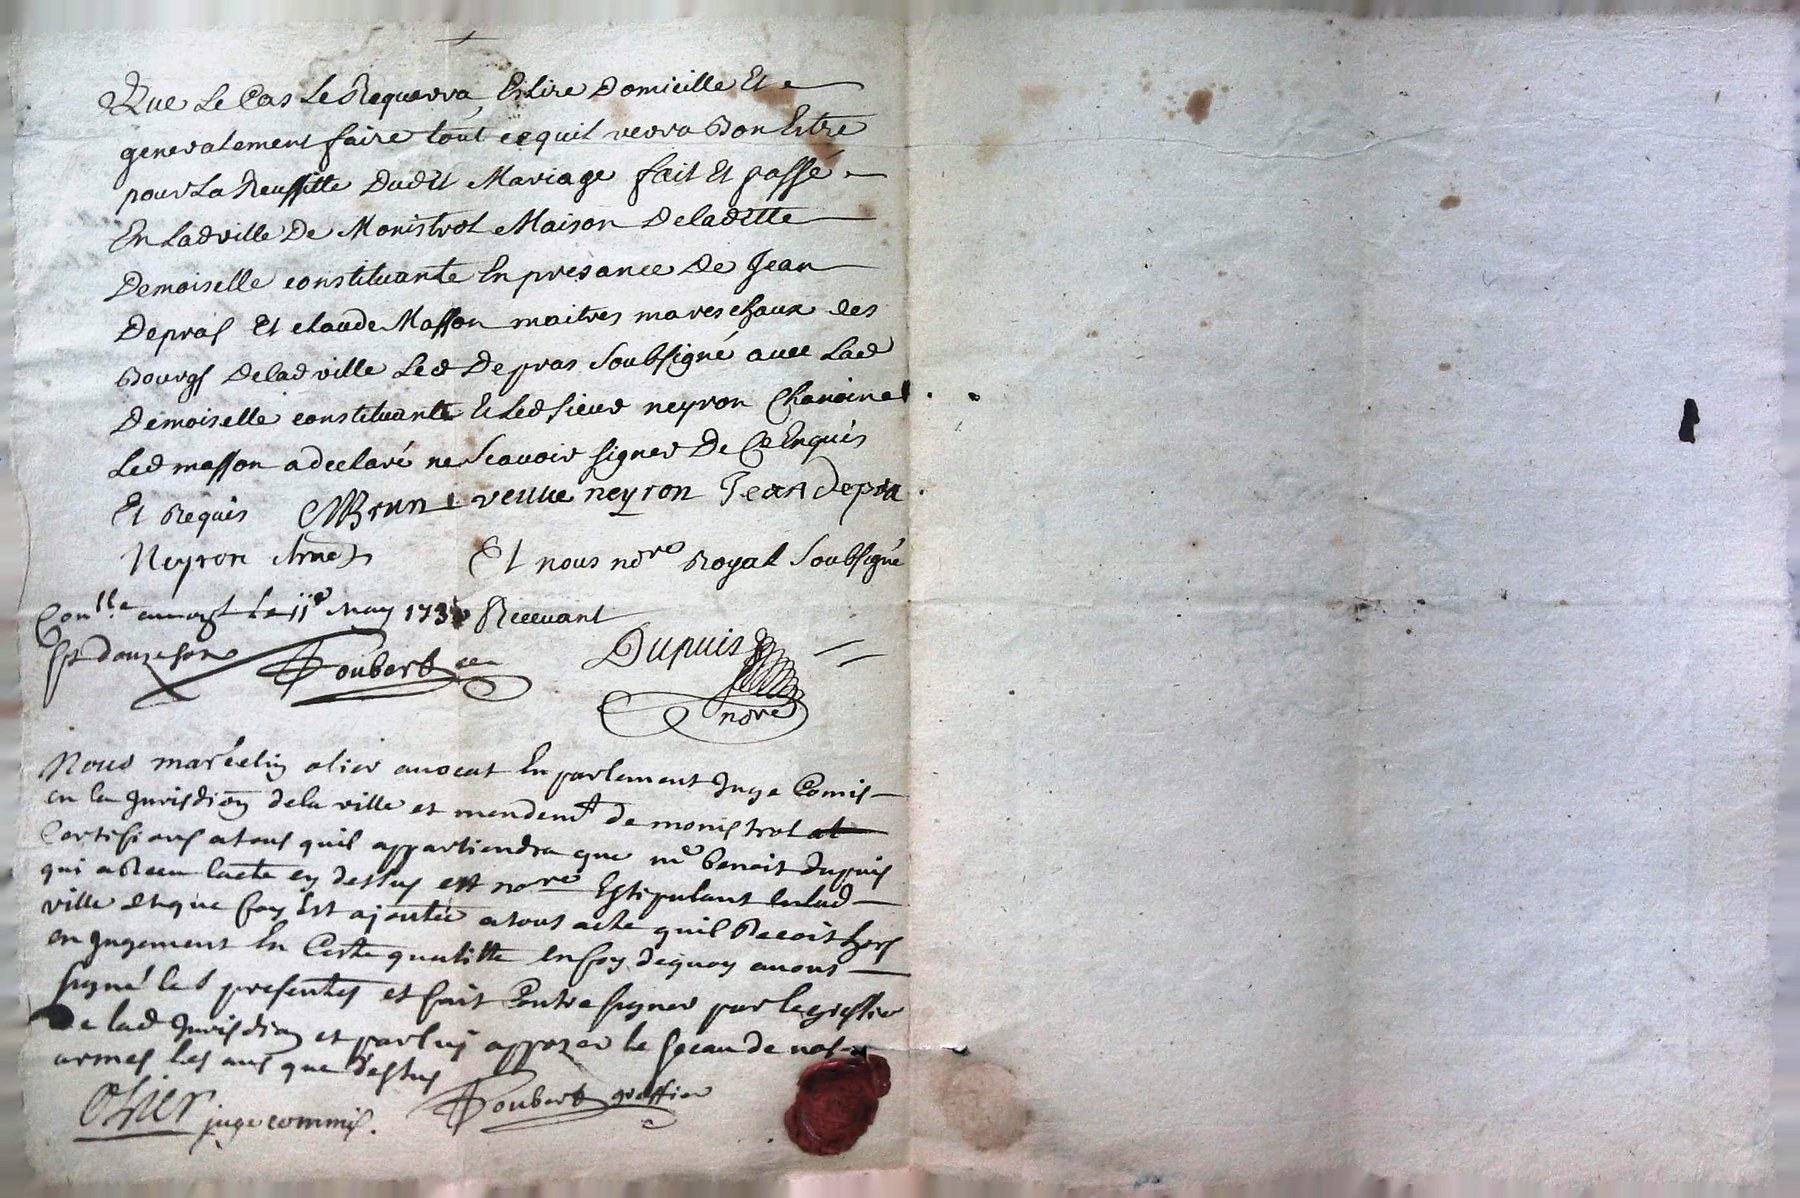 Que Le Cas Le Requerra, Eslire Domicille Et
generalement faire tout ce quil verra Bon Estre
pour La Reussitte Dudit Mariage fait Et passé
En Ladville De Monistrol Maison Deladitte
Demoiselle constituante En presance De Jean
Depras Et claude Masson maitres mareschaux des
Bourgs Deladville Led Depras soubsigné avec Lad
Demoiselle constituante Et Led sieur neyron Chanoine
Led masson a declaré ne scavoir signer De Ce Enquis
Et Requis MBrun veuue neyron Jean depra
Neyron Et nous nore Royal soubsigné
Conlle au 11e May 173 Recevant
Dupuis
Joubert
nore
Nous marcelin olier avocat En parlement Juge Comis
en la Jurisdion dela ville et mendemt de monistrol
Certifions atous quil appartiendra que me benoit dupuis
qui a Receu lacte cy dessus est nore Estipulant enlad
ville et que foy Est ajoutée atous acte quil Recoit hors
en Jugement En Cette qualitte En foy dequoy avons
signé les presentes et fait Contresigner par le greffier
de lad Jurisdion et par luy appozer le sceau de nos
armes les ans que dessus
Olier juge commis.
Joubert greffier